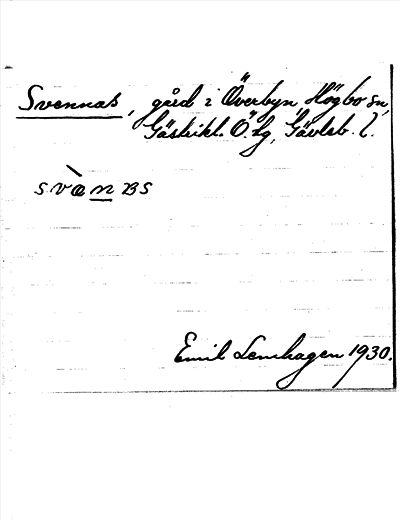 Svennas, gård i Överbyn, Högbo sn,
Gästrikl. Ö. tg, Gävleb. l.
svènas
Emil Lenhagen 1930.